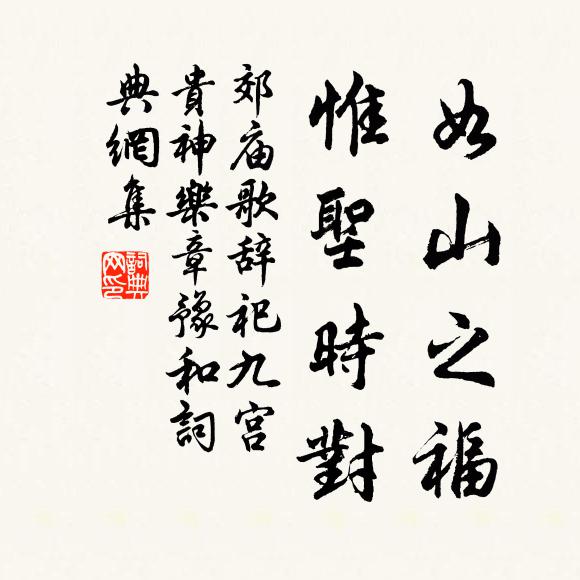 如山之福
惟聖時對
郊庙歌辞祀九宫
貴神樂章豫和詞
典網集
詞典
网印